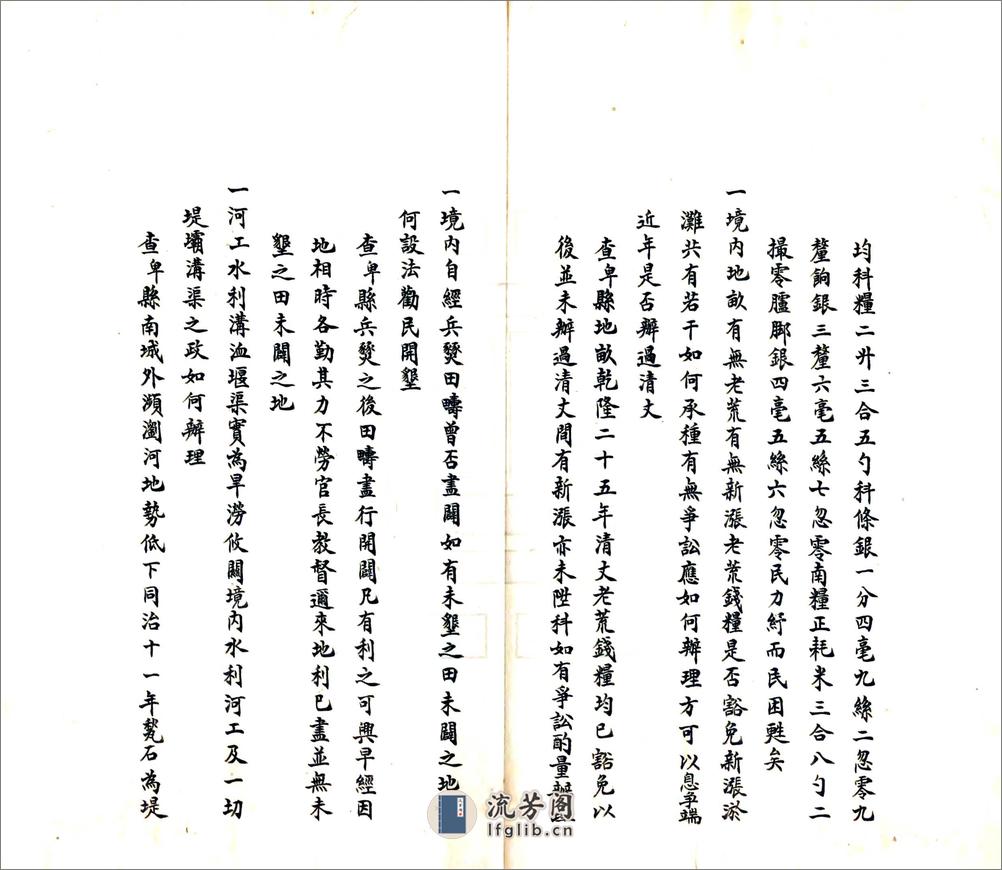 均科糧二升三合五勺科條銀一分四毫九絲二忽零九
釐餉銀三釐六毫五絲七忽零南糧正耗米三合八勺二
撮零臚腳銀四毫五絲六忽零民力紓而民困甦矣
一境內地畝有無老荒有無新漲老荒錢糧是否豁免新漲淤
灘共有若干如何承種有無爭訟應如何辦理方可以息爭端
近年是否辦過清丈
查卑縣地畝乾隆二十五年清丈老荒錢糧均已豁免以
後並未辦過清丈間有新漲亦未陞科如有爭訟酌量辦
一境內自經兵燹田疇曾否盡闢如有未墾之田未闢之地
何設法勸民開墾
查卑縣兵燹之後田疇盡行開闢凡有利之可興早經因
地相時各勤其力不勞官長教督邇來地利已盡並無未
墾之田未闢之地
一河工水利溝洫堰渠實為旱澇攸關境內水利河工及一切
堤壩溝渠之政如何辦理
查卑縣南城外瀕瀏河地勢低下同治十一年甃石為堤
流芳阁
lfglib.cn